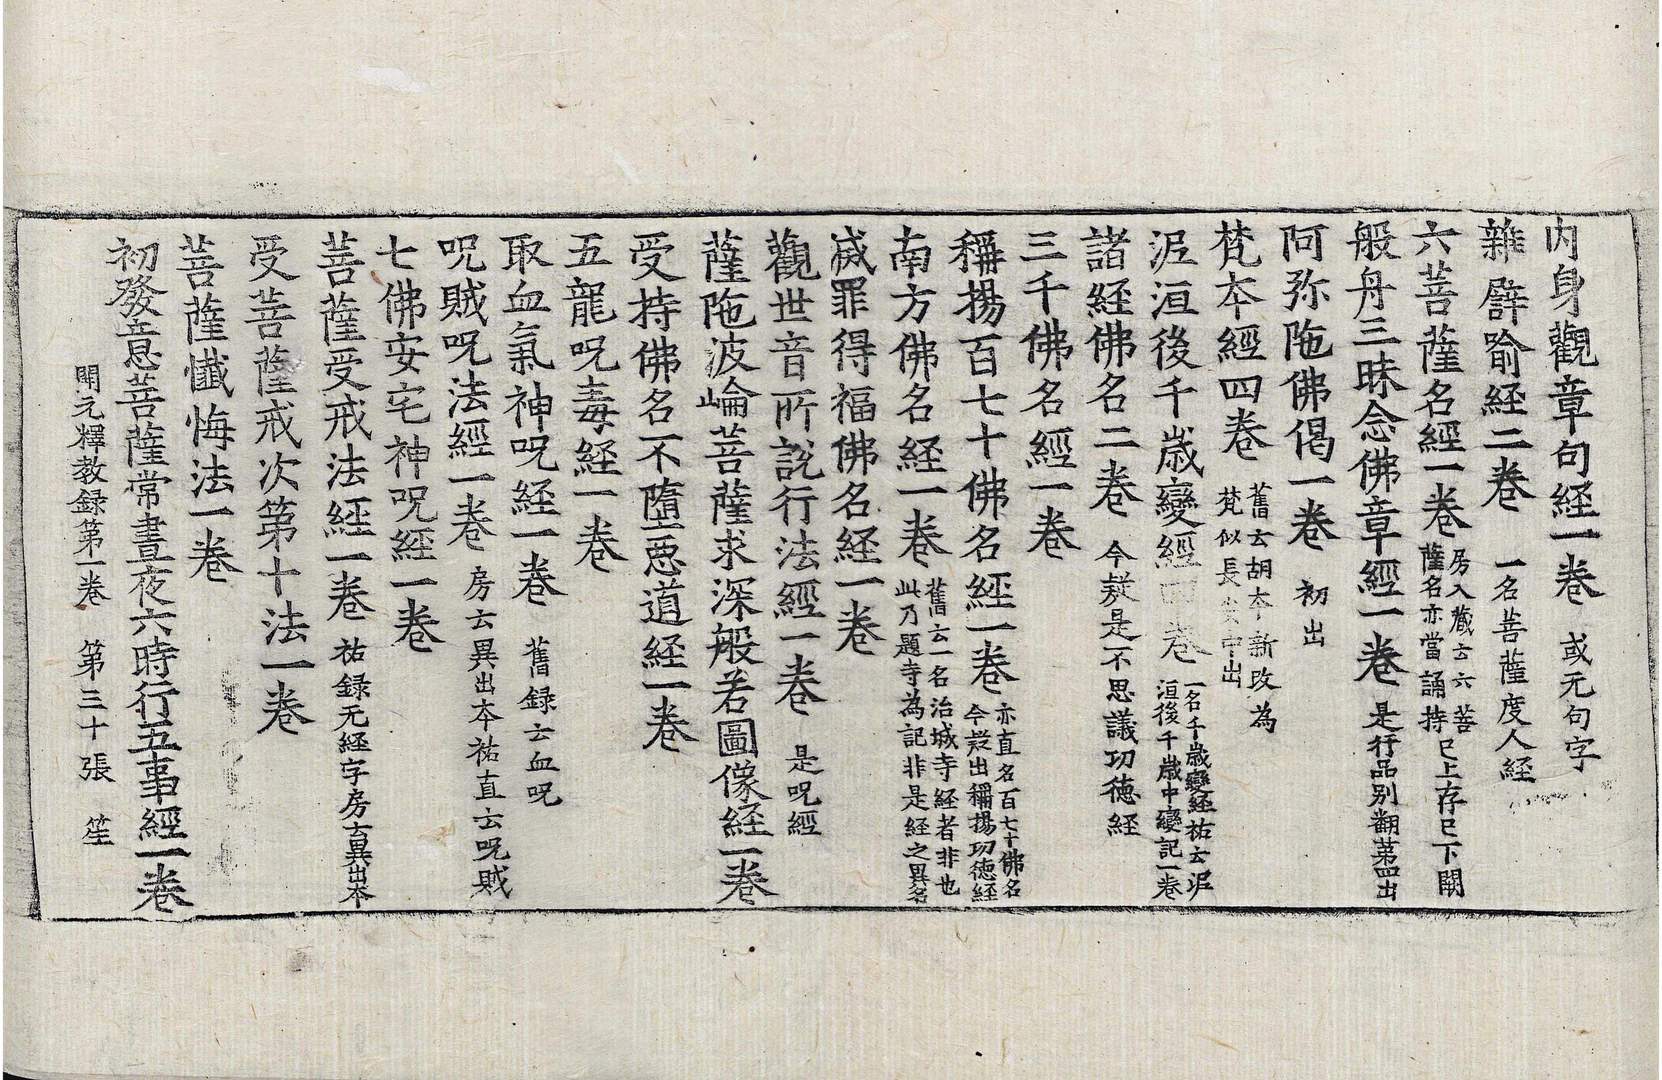 内身觀章句経一卷 或无句字
雜譬喻経二卷 一名菩薩度人経
六菩薩名經一卷 房入藏云六菩薩名亦當誦持 已上存已下闕
般舟三昧念佛章經一卷 是行品别翻第四出
阿弥陁佛偈一卷 初出
梵夲經四卷 舊云胡夲新改為梵似長安中出
泥洹後千歳變經四卷 一名千歳變経祐云泥洹後千歳中變記一卷
諸經佛名二卷 今疑是不思議功徳経
三千佛名經一卷
稱揚百七十佛名經一卷 亦直名百七十佛名今疑出稱揚功徳経
南方佛名経一卷 舊云一名治城寺経者非也此乃題寺為記非是経之異名
滅罪得福佛名経一卷
觀世音所說行法經一卷 是呪經
薩陁波崘菩薩求深般若圖像経一卷
受持佛名不墮惡道経一卷
五龍呪毒経一卷
取血氣神呪経一卷 舊録云血呪
呪賊呪法經一卷 房云異出夲祐直云呪賊
七佛安宅神呪經一卷
菩薩受戒法經一卷 祐録无経字房云異出夲
受菩薩戒次第十法一卷
菩薩懺悔法一卷
初發意菩薩常晝夜六時行五事經一卷
開元釋教録第一卷 第三十張 笙